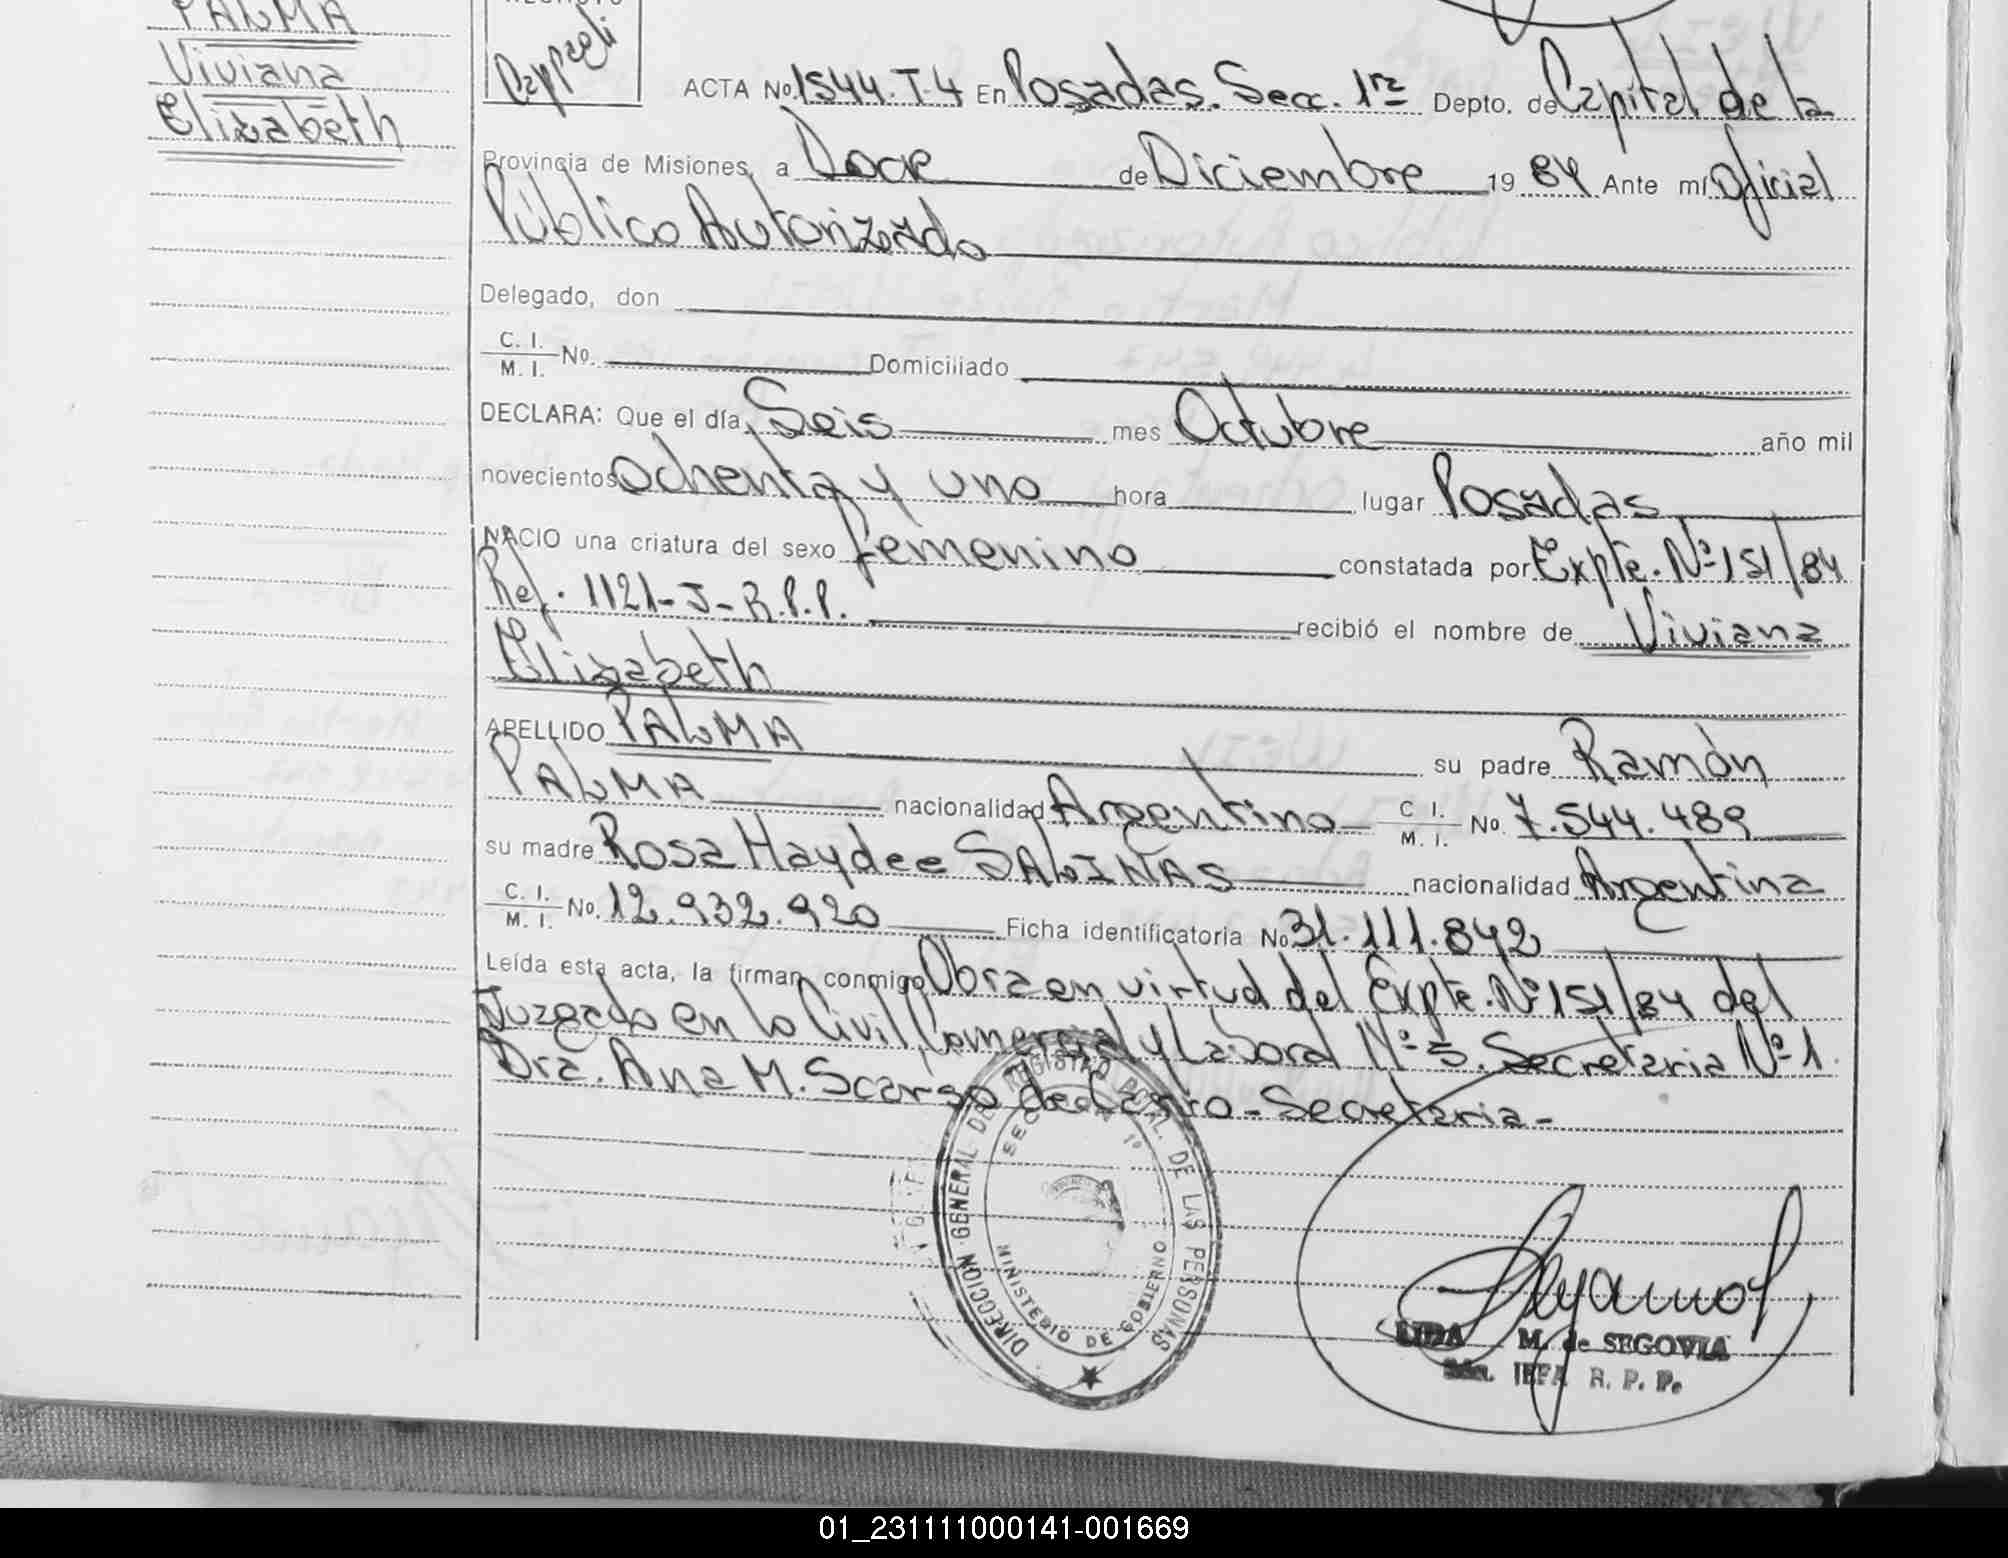 PALMA
Viviana
Elizabeth
ACTA No. 1544.T.4 En Posadas. Secc. 1ra Depto. de Capital de la
Provincia de Misiones, a Doce de Diciembre 1984 Ante mí Oficial
Público Autorizado
Delegado, don
C. I. M. I. No. Domiciliado
DECLARA: Que el día Seis mes Octubre año mil
novecientos ochenta y uno hora lugar Posadas
NACIO una criatura del sexo femenino constatada por Expte. Nº 151/84
Ref. 1121-J-R.P.P. recibió el nombre de Viviana
Elizabeth
APELLIDO PALMA su padre Ramón
PALMA nacionalidad Argentino C. I. M. I. No. 7.544.489
su madre Rosa Haydee SALINAS nacionalidad Argentina
C. I. M. I. No. 12.932.920 Ficha identificatoria No 31.111.842
Leída esta acta, la firman conmigo Obra en virtud del Expte. Nº 151/84 del
Juzgado en lo Civil, Comercial y Laboral Nº 5. Secretaria Nº 1.
Dra. Ana M. Scarso de Castro - Secretaria -
DIRECCION GENERAL DEL REGISTRO PCIAL. DE LAS PERSONAS
MINISTERIO DE GOBIERNO
LIDA M. de SEGOVIA
JEFA R. P. P.
01_231111000141-001669